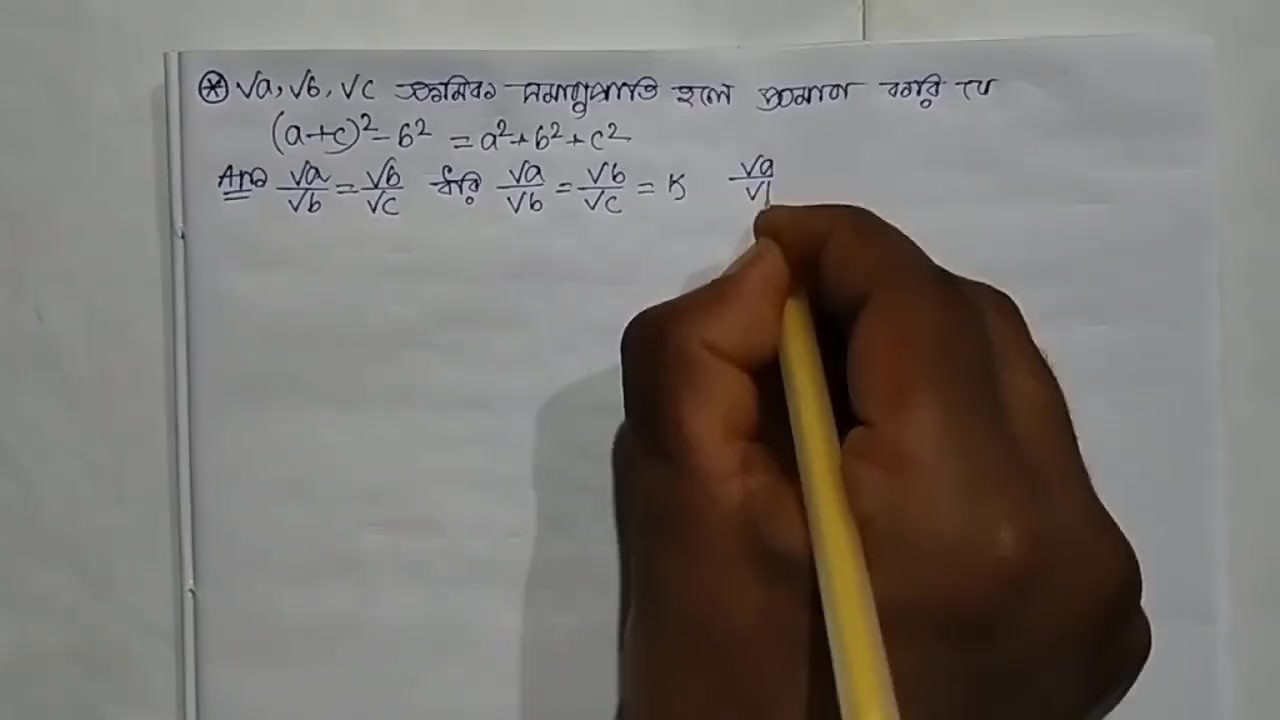 ⊛ √a, √b, √c ক্রমিক সমানুপাতি হলে প্রমাণ করি যে
(a+c)² - b² = a² + b² + c²
Ans √a/√b = √b/√c ধরি √a/√b = √b/√c = K √a/√